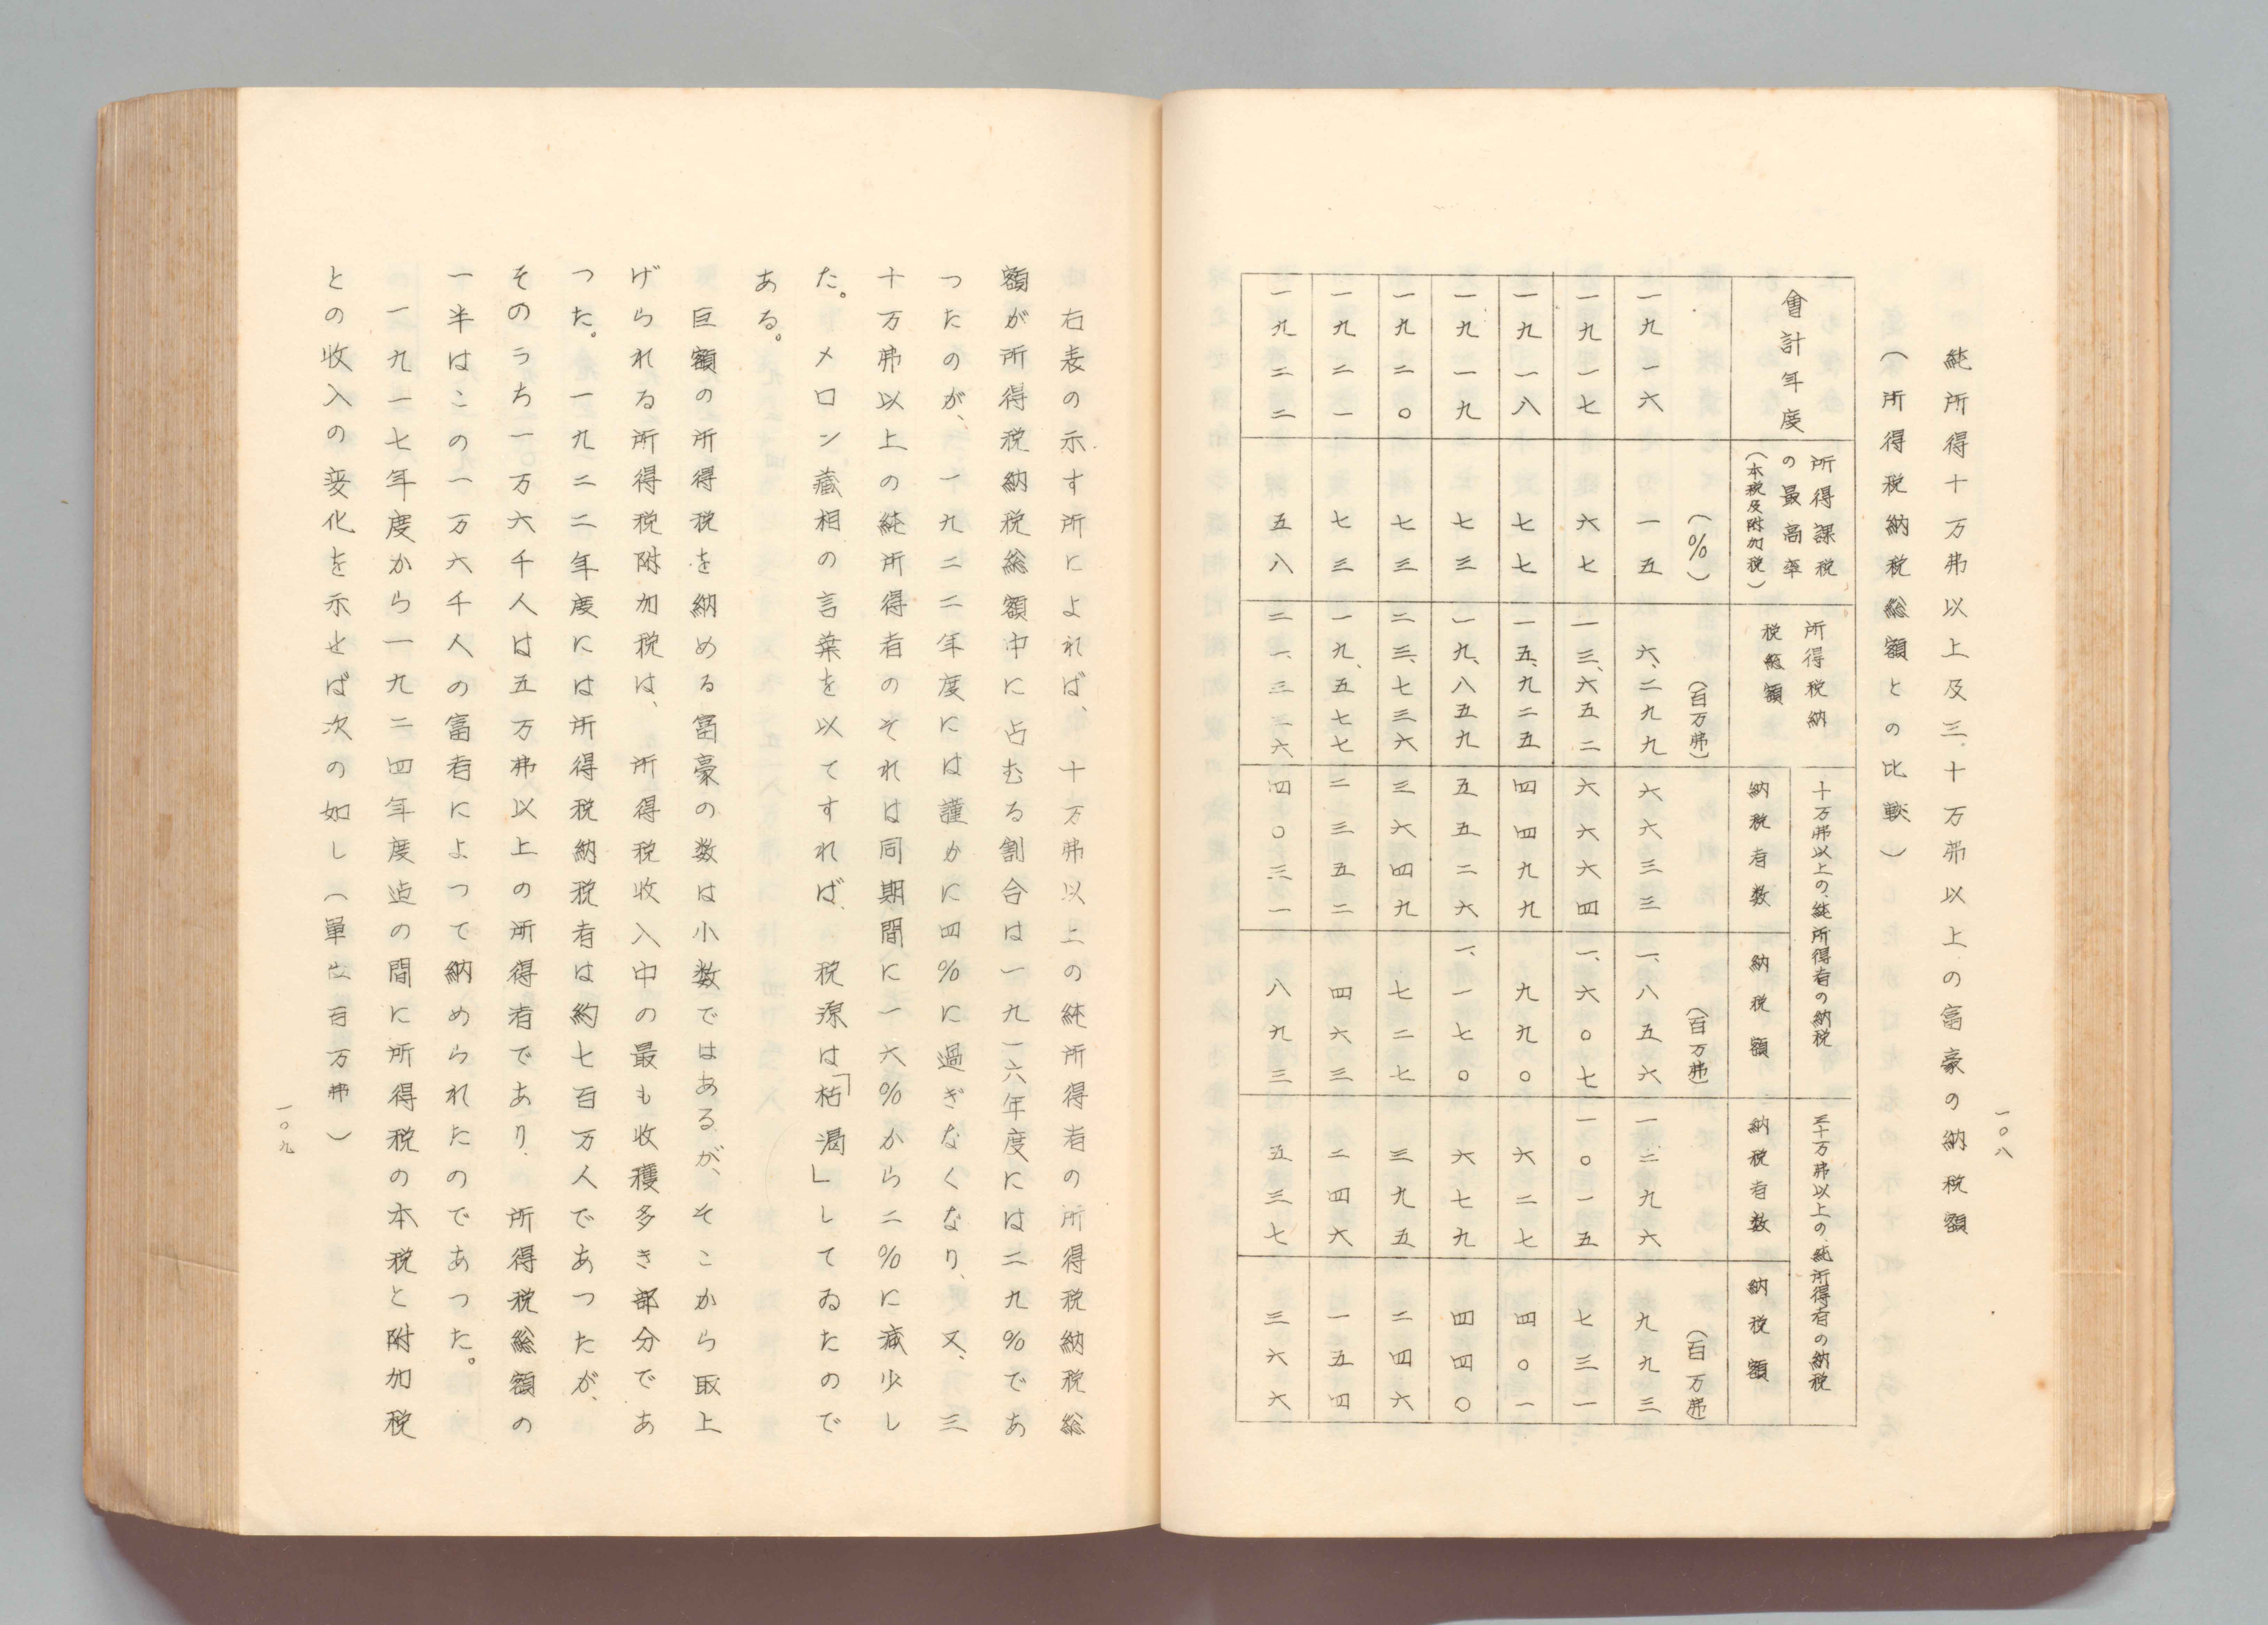 一〇八
純所得十万弗以上及三十万弗以上の富豪の納税額
（所得税納税総額との比較）
會計年度
所得課税
の最高率
（本税及附加税）
所得税納
税総額
十万弗以上の純所得者の納税
納税者数
納税額
三十万弗以上の純所得者の納税
納税者数
納税額
（%）
（百万弗）
（百万弗）
（百万弗）
一九一六 一五 六、二九九 六六三三 一、八五六 一二九六 九九三
一九一七 六七 一三、六五二 六六六四 一、六〇七 一〇一五 七三一
一九一八 七七 一五、九二五 四四九九 九九〇 六二七 四〇一
一九一九 七三 一九、八五九 五五二六 一、一七〇 六七九 四四〇
一九二〇 七三 二三、七三六 三六四九 七二七 三九五 二四六
一九二一 七三 一九、五七七 二三五二 四六三 二四六 一五四
一九二二 五八 二一、三一六 四〇三一 八九三 五三七 三六六
右表の示す所によれば、十万弗以上の純所得者の所得税納税総
額が所得税納税総額中に占むる割合は一九一六年度には二九%であ
つたのが、一九二二年度には謹かに四%に過ぎなくなり、又、三
十万弗以上の純所得者のそれは同期間に一六%から二%に減少し
た。メロン蔵相の言葉を以てすれば、税源は「枯渇」してゐたので
ある。
巨額の所得税を納める富豪の数は小数ではあるが、そこから取上
げられる所得税附加税は、所得税收入中の最も收穫多き部分であ
つた。一九二二年度には所得税納税者は約七百万人であつたが、
そのうち一万六千人は五万弗以上の所得者であり、所得税総額の
一半はこの一万六千人の富者によつて納められたのであつた。
一九一七年度から一九二四年度迄の間に所得税の本税と附加税
との收入の変化を示せば次の如し（單位百万弗）
一〇九